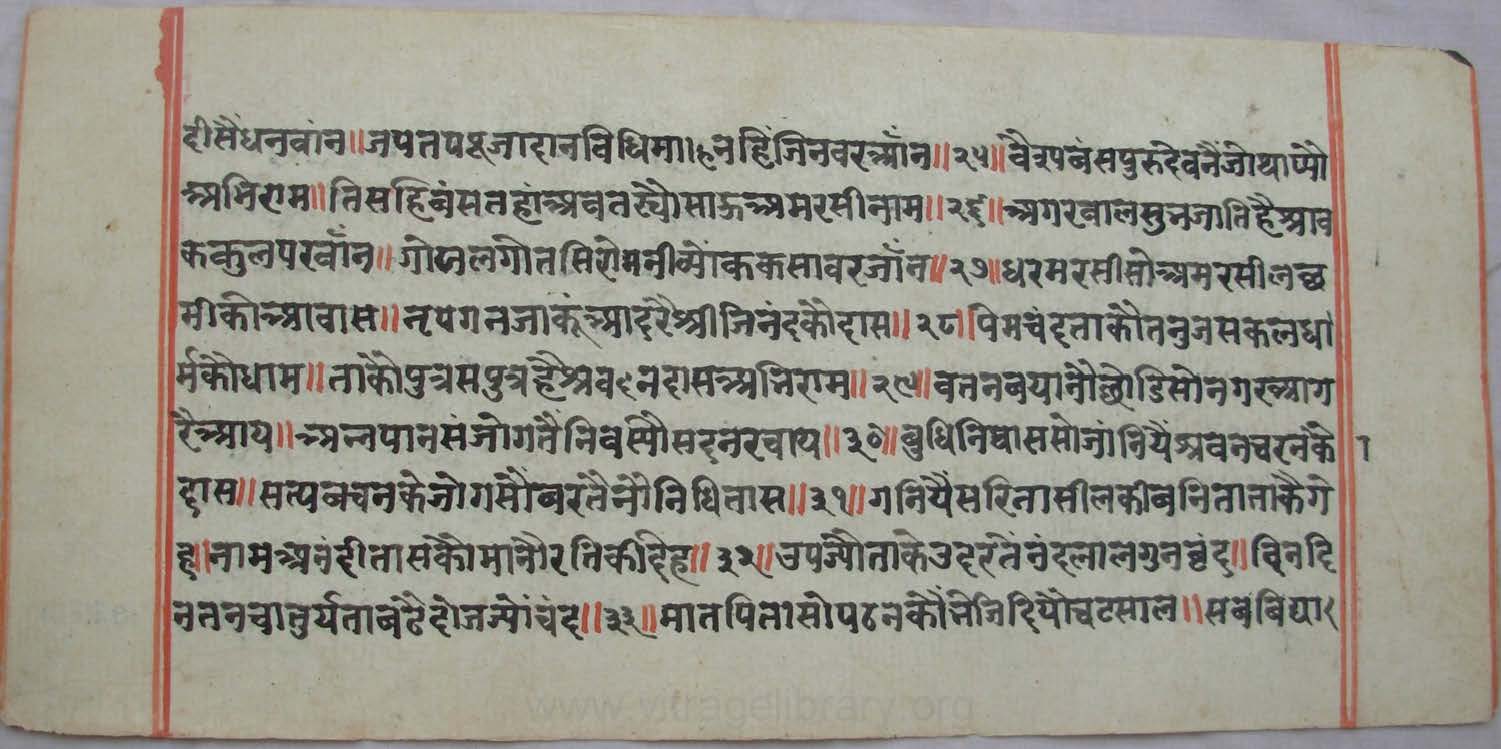 दीसैंधनवांन॥जपतपपूजादानविधिमा।हनहिंजिनवरआँन॥२५॥वैरूपबंसपुरुदेवनैंजोथाप्यौ
अभिराम॥तिसहिबंसतहांअवतर्‍यौसाऊअमरसीनाम॥२६॥अगरवालसुनजातिहैश्राव
ककुलपरवाँन॥गोहलगौतसिरोमनीब्योंककसावरजाँन॥२७॥धरमरसीसोअमरसीलछ
मीकौआवास॥नृपगनजाकूंआदरैश्रीजिनंदकौदास॥२८॥पिमचंदताकौतनुजसकलधा
र्मकौधाम॥ताकौपुत्रसपुत्रहैश्रवनदासअभिराम॥२९॥वतनबयानौछोडिसोनगरआग
रैआय॥अन्नपानसंजोगतैंनिवस्यौसदनरचाय॥३०॥बुधिनिवाससोजांनियैंश्रवनचरनकै १
दास॥सत्यबचनकेजोगसौंबरतैनौंनिधितास॥३१॥गनियैंसरितासीलकीबनिताताकैगे
ह॥नामअनंदीतासकौमानौरतिकीदेह॥३२॥उपज्यौताकेउदरतैंनंदलालगुनबृंद॥दिनदि
नतनचातुर्यताबढैदोजज्यौंचंद॥३३॥मातपितासोपठनकौंभेजिदियौचटसाल॥सबबिद्या
www.vitragelibrary.org